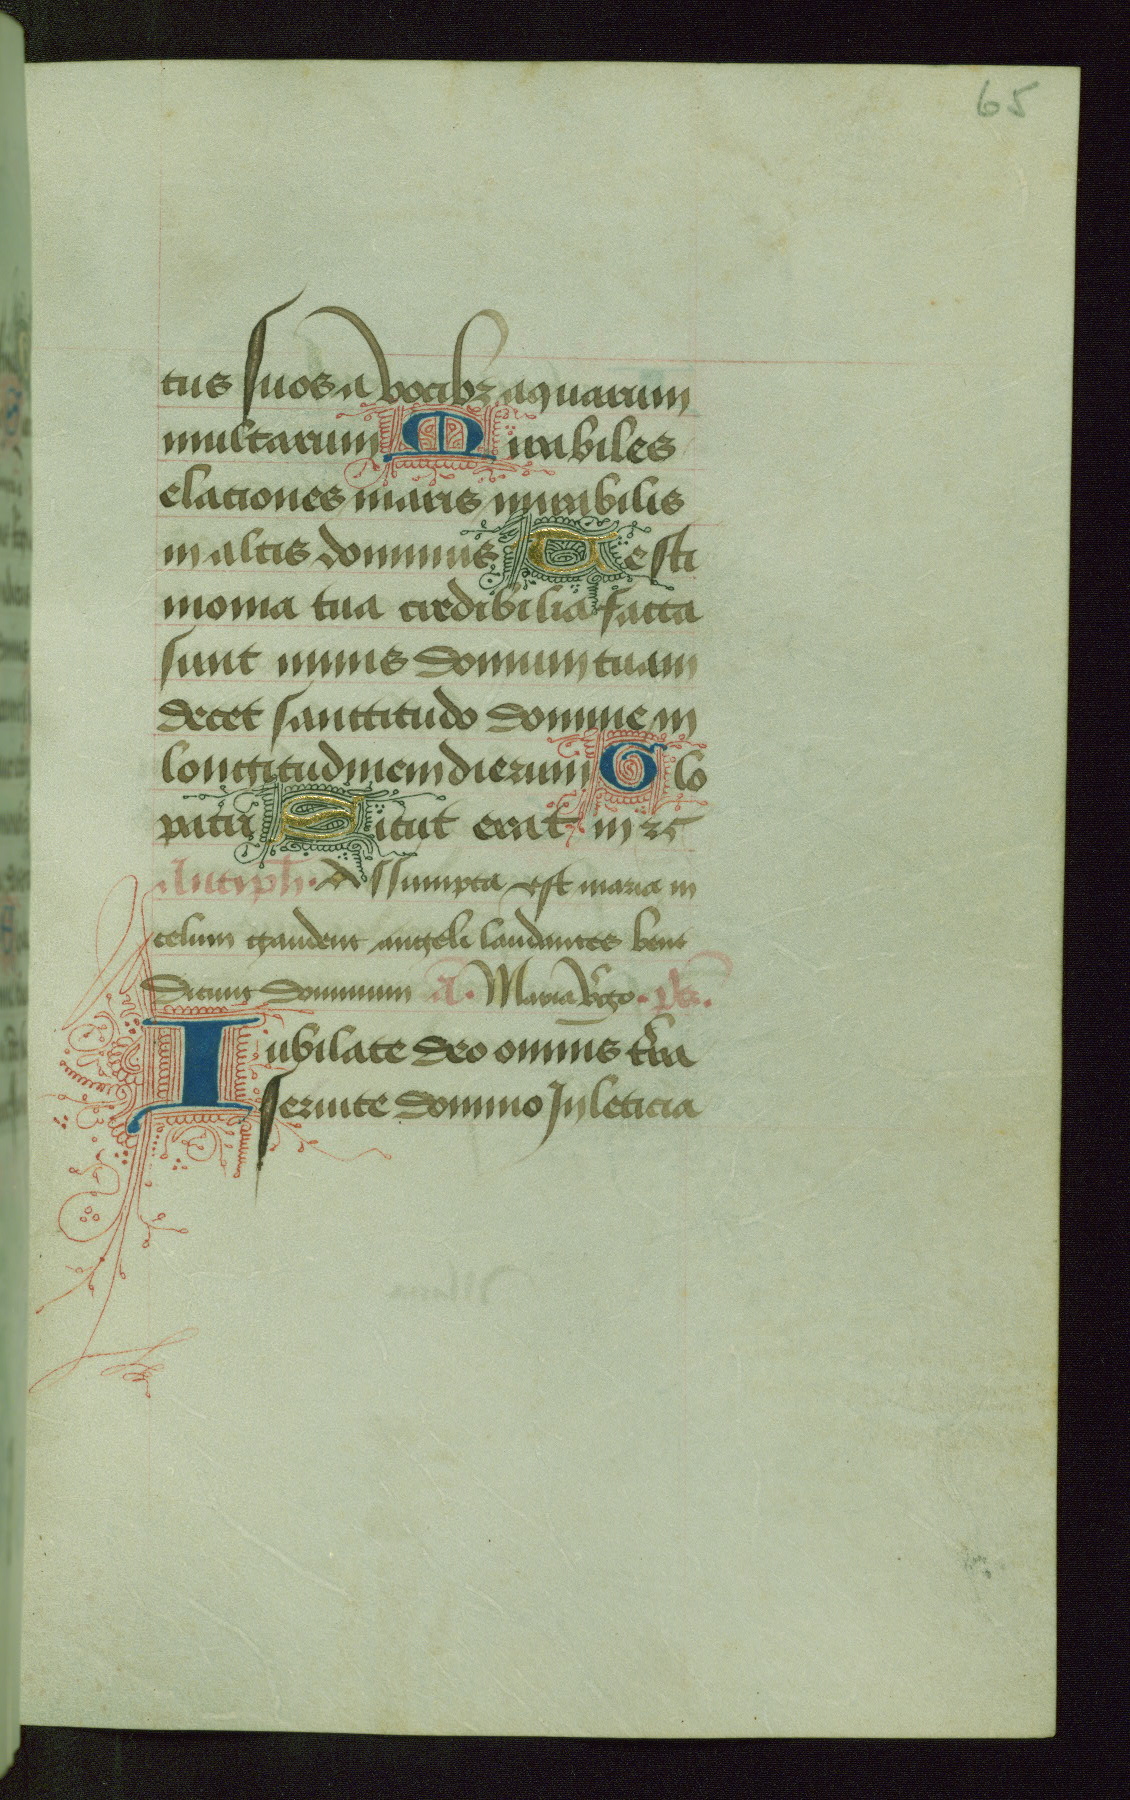 65
tus suos a vocibꝫ aquarum
multarum Mirabiles
elaciones maris mirabilis
in altis dominus Testi
monia tua credibilia facta
sunt nimis domum tuam
decet sanctitudo domine in
longitudinem dierum Glo
patri Sicut erat in
Antiph. Assumpta est maria in
celum gaudent angeli laudantes bene
dicunt dominum A. Maria v̾go. ps.
Iubilate deo omnis t̾ra
seruite domino In leticia